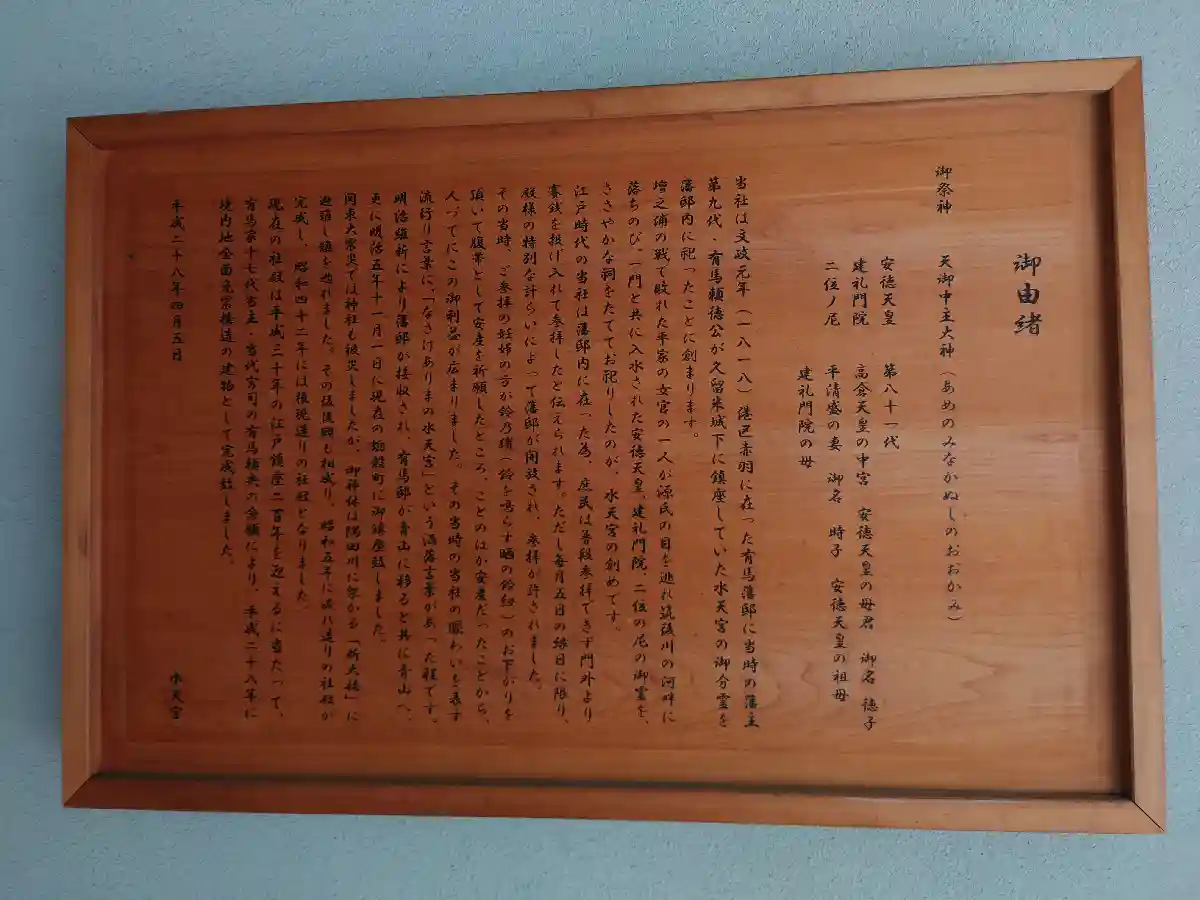 御由緒
御祭神　天御中主大神（あめのみなかぬしのおおかみ）
安徳天皇　第八十一代
建礼門院　高倉天皇の中宮　安徳天皇の母君　御名 徳子
二位ノ尼　平清盛の妻　御名　時子　安徳天皇の祖母
建礼門院の母
当社は文政元年（一八一八）港区赤羽に在った有馬藩邸に当時の藩主
第九代・有馬頼徳公が久留米城下に鎮座していた水天宮の御分霊を
藩邸内に祀ったことに創まります。
壇之浦の戦で敗れた平家の女官の一人が源氏の目を逃れ筑後川の河畔に
落ちのび、一門と共に入水された安徳天皇、建礼門院、二位の尼の御霊を、
ささやかな祠をたててお祀りしたのが、水天宮の創めです。
江戸時代の当社は藩邸内に在った為、庶民は普段参拝できず門外より
賽銭を投げ入れて参拝したと伝えられます。ただし毎月五日の縁日に限り、
殿様の特別な計らいによって藩邸が開放され、参拝が許されました。
その当時、ご参拝の妊婦の方が鈴乃緒（鈴を鳴らす晒の鈴紐）のお下がりを
頂いて腹帯として安産を祈願したところ、ことのほか安産だったことから、
人づてにこの御利益が広まりました。その当時の当社の賑わいを表す
流行り言葉に、「なさけありまの水天宮」という洒落言葉があった程です。
明治維新により藩邸が接収され、有馬邸が青山に移ると共に青山へ、
更に明治五年十一月一日に現在の蛎殻町に御鎮座致しました。
関東大震災では神社も被災しましたが、御神体は隅田川に架かる「新大橋」に
避難し難を逃れました。その後復興も相成り、昭和五年に流れ造りの社殿が
完成し、昭和四十二年には権現造りの社殿となりました。
現在の社殿は平成三十年の江戸鎮座二百年を迎えるに当たって、
有馬家十七代当主・当代宮司の有馬頼央の念願により、平成二十八年に
境内地全面免震構造の建物として完成致しました。
平成二十八年四月五日　水天宮